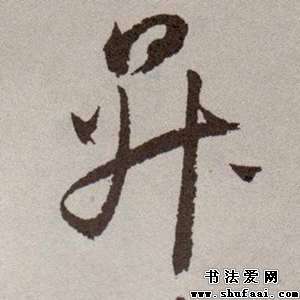 鼎
书法爱网
www.shufaai.com